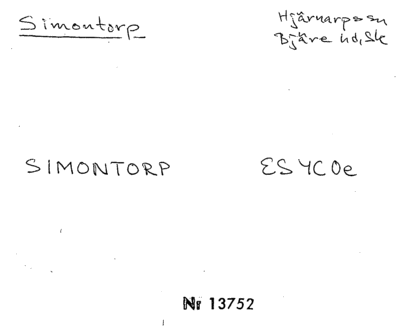 Simontorp
Hjärnarps sn
Bjäre hd, Sk
SIMONTORP
ES 4C 0e
Nr 13752